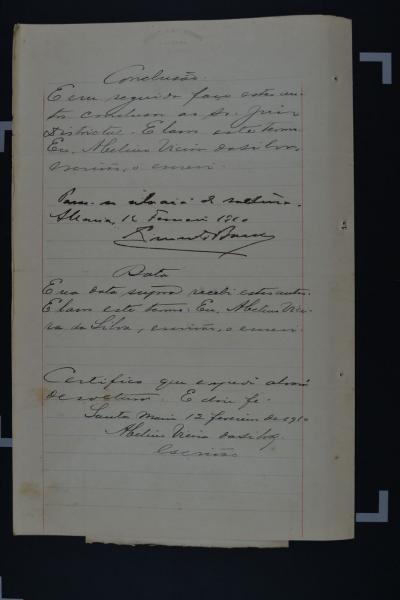 Conclusão.
E em seguida faço estes au-
tos conclusos ao Sr. Juiz
Districtal. E lavro este termo.
Eu, Abelino Vieira da Silva,
escrivão, o escrevi.
Passe-se alvará de soltura.
S. Maria, 12 Fevereiro 1910
Data
E na data supra recebi estes autos.
E lavro este termo. Eu, Abelino Viei-
ra da Silva, escrivão, o escrevi.
Certifico que expedi alvará
de soltura. E dou fé.
Santa Maria 12 fevereiro de 1910
Abelino Vieira da Silva
escrivão